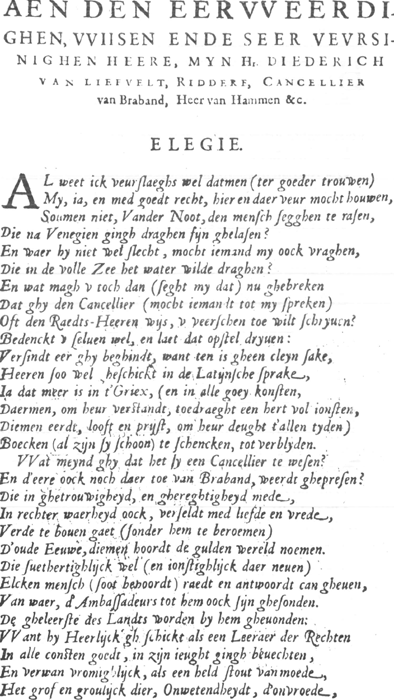 AEN DEN EERVVEERDI-
GHEN, VVIISEN ENDE SEER VEVRSI-
NIGHEN HEERE, MYN Hr. DIEDERICH
VAN LIEFVELT, RIDDERE, CANCELLIER
van Braband, Heer van Hammen &c.
ELEGIE.
AL weet ick veurslaeghs wel datmen (ter goeder trouwen)
My, ia, en med goedt recht, hier en daer veur mocht houwen,
Soumen niet, Vander Noot, den mensch segghen te rasen,
Die na Venegien gingh draghen sijn ghelasen?
En waer hy niet wel slecht, mocht iemand my oock vraghen,
Die in de volle Zee het water wilde draghen?
En wat magh v toch dan (seght my dat) nu ghebreken
Dat ghy den Cancellier (mocht iemandt tot my spreken)
Oft den Raedts-Heeren wijs, v veerschen toe wilt schryuen?
Bedenckt v seluen wel, en laet dat opstel dryuen:
Versindt eer ghy beghindt, want ten is gheen cleyn sake,
Heeren soo wel gheschickt in de Latijnsche sprake,
Ia dat meer is in t'Griex, (en in alle goey konsten,
Daermen, om heur verstandt, toedraeght een hert vol ionsten,
Diemen eerdt, looft en prijst, om heur deught t'allen tyden)
Boecken (al zijn sy schoon) te schencken, tot verblyden.
VVat meynd ghy dat het sy een Cancellier te wesen?
En d'eere oock noch daer toe van Braband, weerdt ghepresen?
Die in ghetrouwigheyd, en ghereghtigheyd mede,
In rechter waerheyd oock, verseldt med liefde en vrede,
Verde te bouen gaet (sonder hem te beroemen)
D'oude Eeuwe, diemen hoordt de gulden wereld noemen.
Die suethertighlijck wel (en ionstighlijck daer neuen)
Elcken mensch (soot behoordt) raedt en antwoordt can gheuen,
Van waer, d'Ambassadeurs tot hem oock sijn ghesonden.
De gheleerste des Landts worden by hem gheuonden:
VVant hy Heerlijck gh'schickt als een Leeraer der Rechten
In alle consten goedt, in zijn ieught gingh beuechten,
En verwan vromighlijck, als een held stout van moede,
Het grof en grouwlijck dier, Onwetendheydt, d'onvroede,